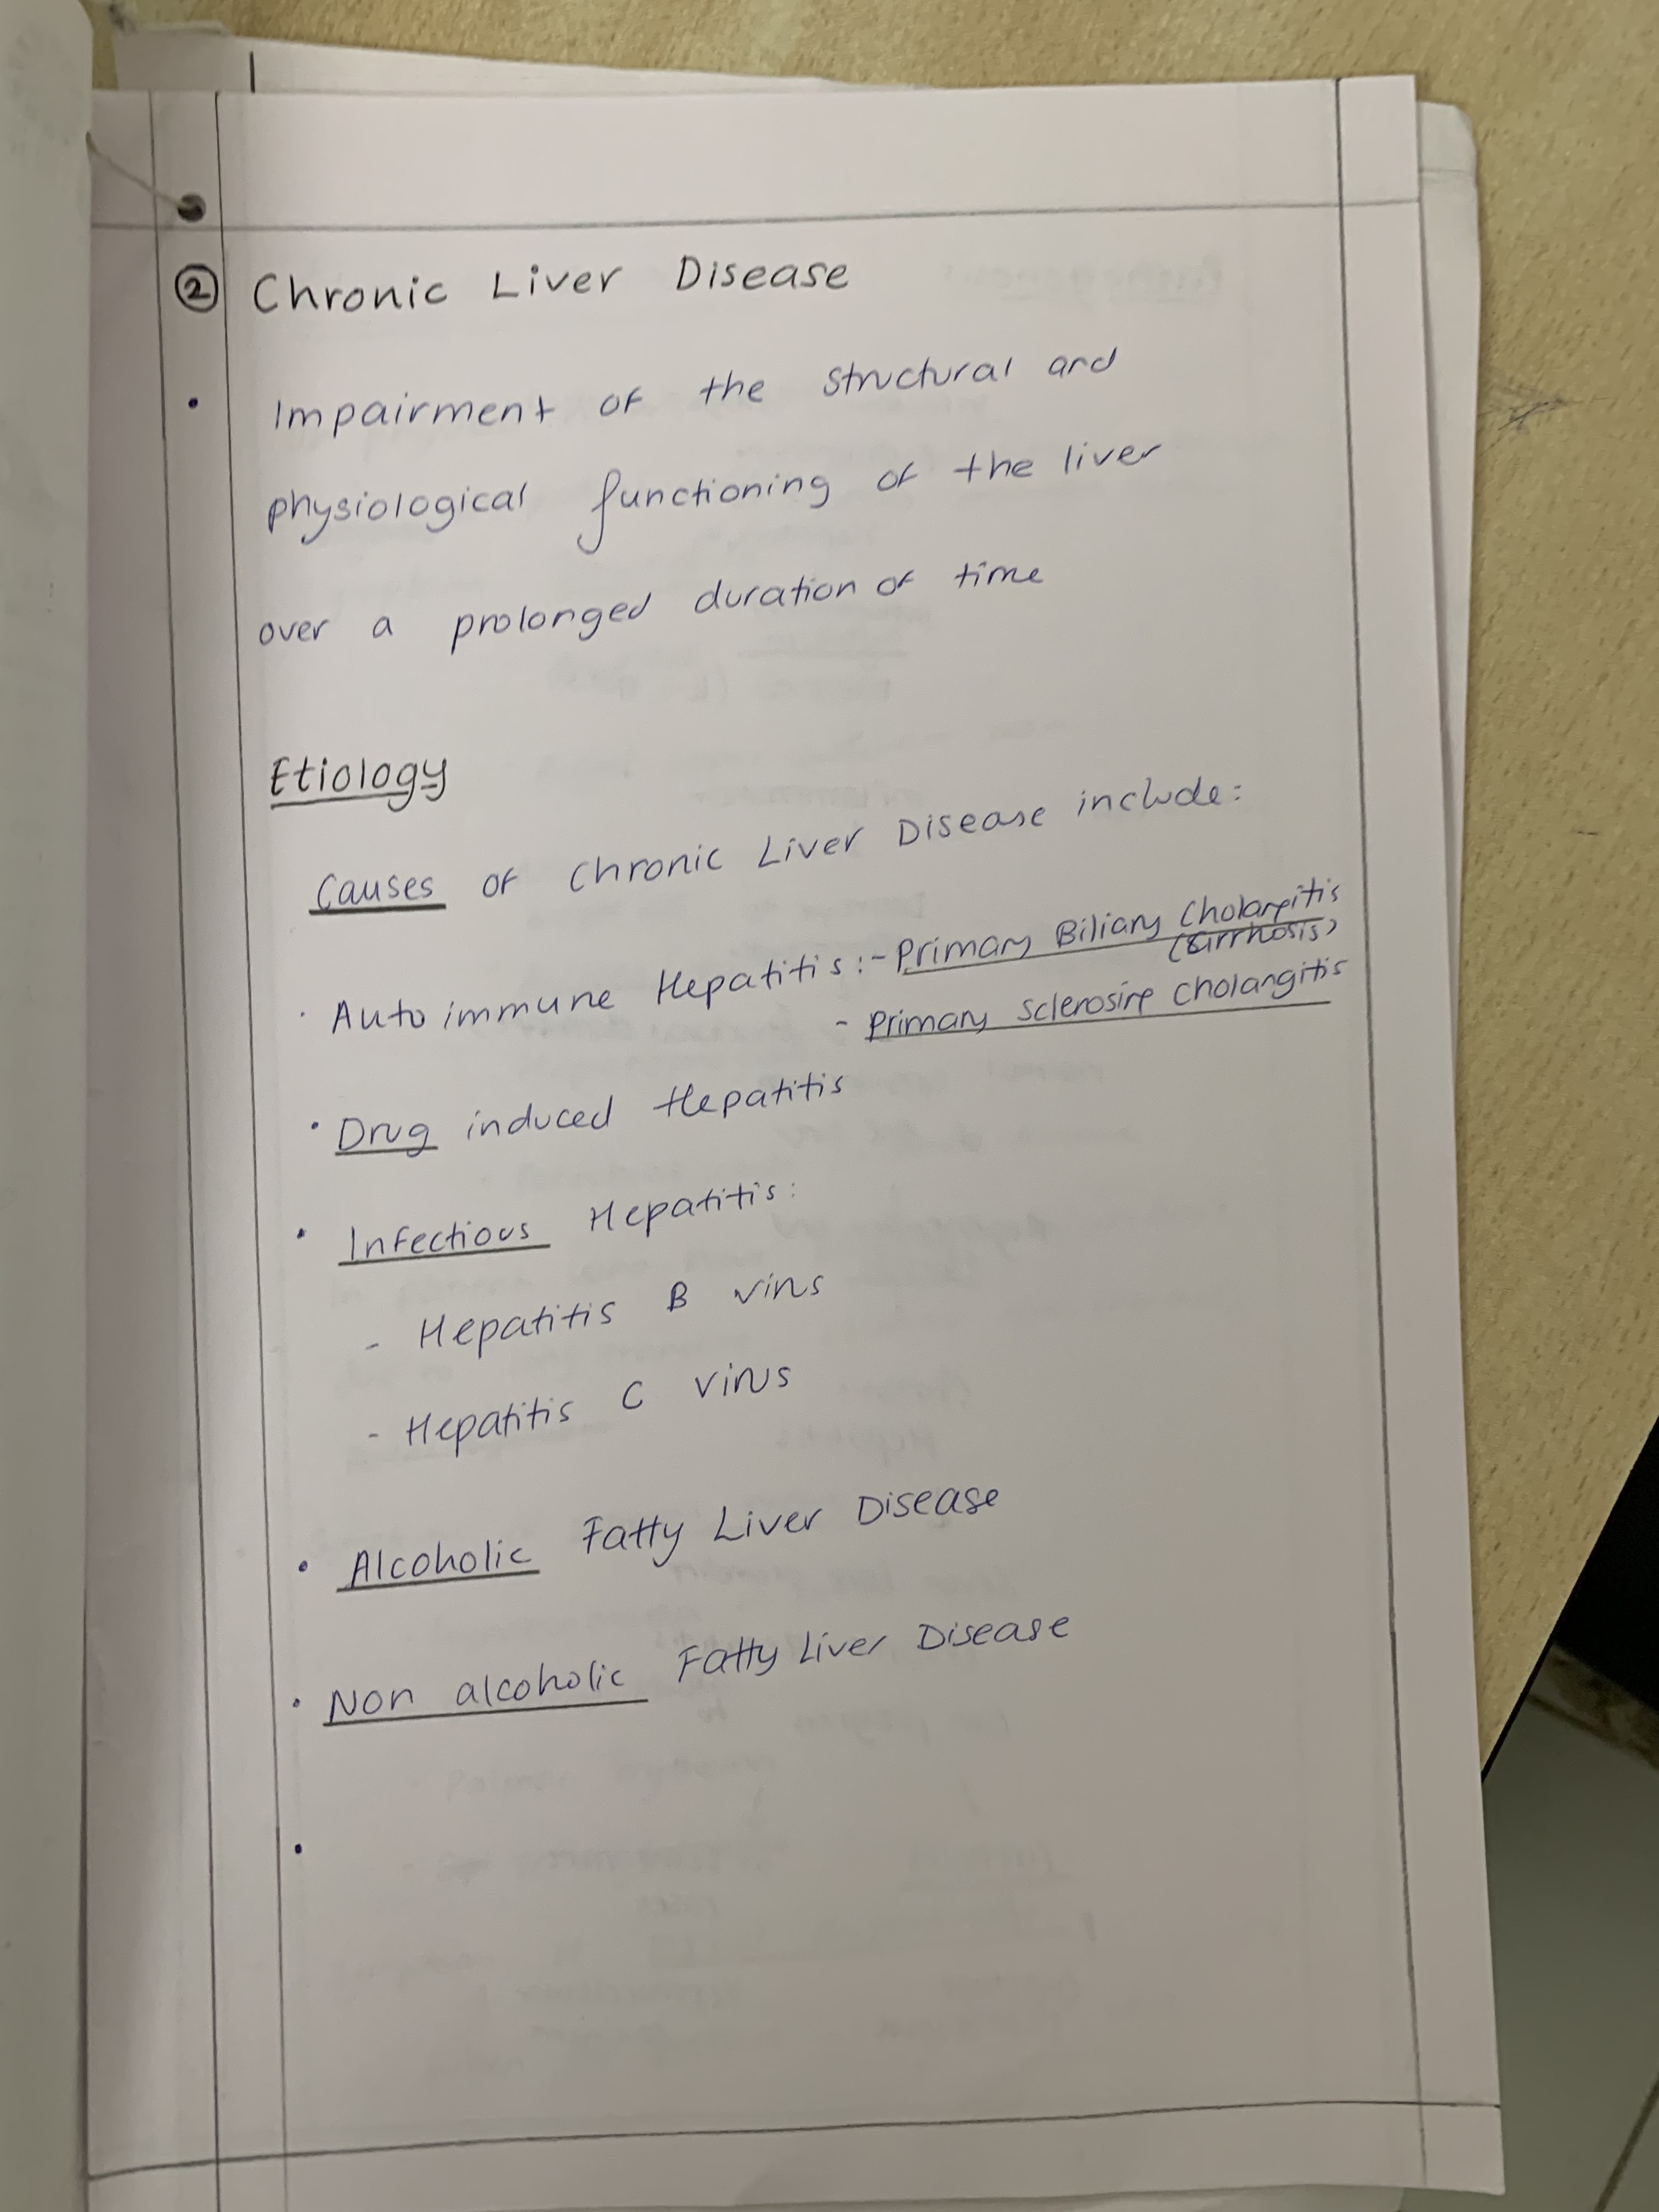 ② Chronic Liver Disease
• Impairment of the structural and
physiological functioning of the liver
over a prolonged duration of time
Etiology
Causes of Chronic Liver Disease include:
• Auto immune Hepatitis :- Primary Biliary Cholangitis
(Cirrhosis)
- Primary Sclerosing Cholangitis
• Drug induced Hepatitis
• Infectious Hepatitis:
- Hepatitis B virus
- Hepatitis C virus
• Alcoholic Fatty Liver Disease
• Non alcoholic Fatty Liver Disease
•